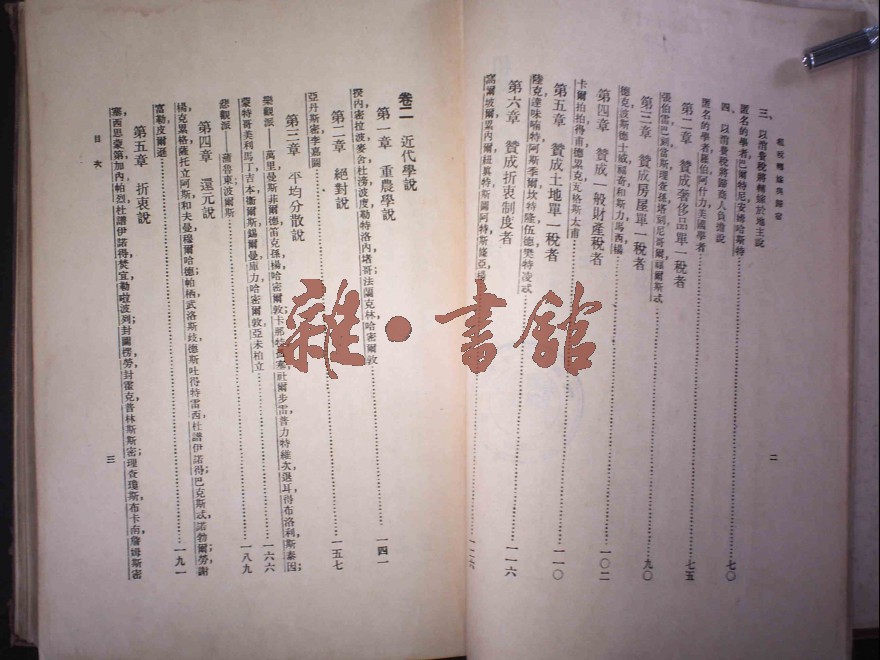 租稅轉嫁與歸宿
二
三、以消費稅將轉嫁於地主說
匿名的學者巴爾特尼安娣哈斯特……七〇
四、以消費稅將歸商人負擔說
匿名的學者羅伯阿什力美國學者……七五
第二章 贊成奢侈品單一稅者
張伯雷巴到當斯理查孫塔刻尼哥爾福爾斯忒……九〇
第三章 贊成房屋單一稅者
德克波斯德士威福奇和斯力馬西楊……一〇二
第四章 贊成一般財產稅者
卡爾拍拍得甫德畢克瓦格斯太甫……一一〇
第五章 贊成土地單一稅者
陸克達味喃特阿斯季爾坎特隆伍德奧特凌忒……一一六
第六章 贊成折衷制度者
……一二六
卷二 近代學說
第一章 重農學說
揆內密拉波麥舍杜滂波度勒特洛內堵哥法蘭克林哈密爾敦……一四一
第二章 絕對說
亞丹斯密李嘉圖……一五七
第三章 平均分散說
樂觀派——萬里曼斯菲爾德笛克孫,楊哈密爾敦卡那特 塞社爾步雷普力特維次退耳得布洛利斯泰因;……一六六
蒙特哥美利馬丁吉本,衞爾斯,錫爾曼庫力哈密爾敦,亞未柏立
悲觀派——蒲魯東,波爾斯……一八九
第四章 還元說
楊克累格薩托立阿斯和夫曼,穆爾哈德,帕栖,武洛斯歧,德斯吐得特雷西,杜譜伊諾得,巴克斯忒,諾勃爾,勞,謝
富勒,皮爾遜……一九一
第五章 折衷說
塞西思蒙第加內,帕烈,杜譜伊諾得,焚宜,勒啦波列;封圖楞勞,封霍克普林斯斯密;理查瓊斯,布卡南,詹姆斯密
目次
三
雜·書館